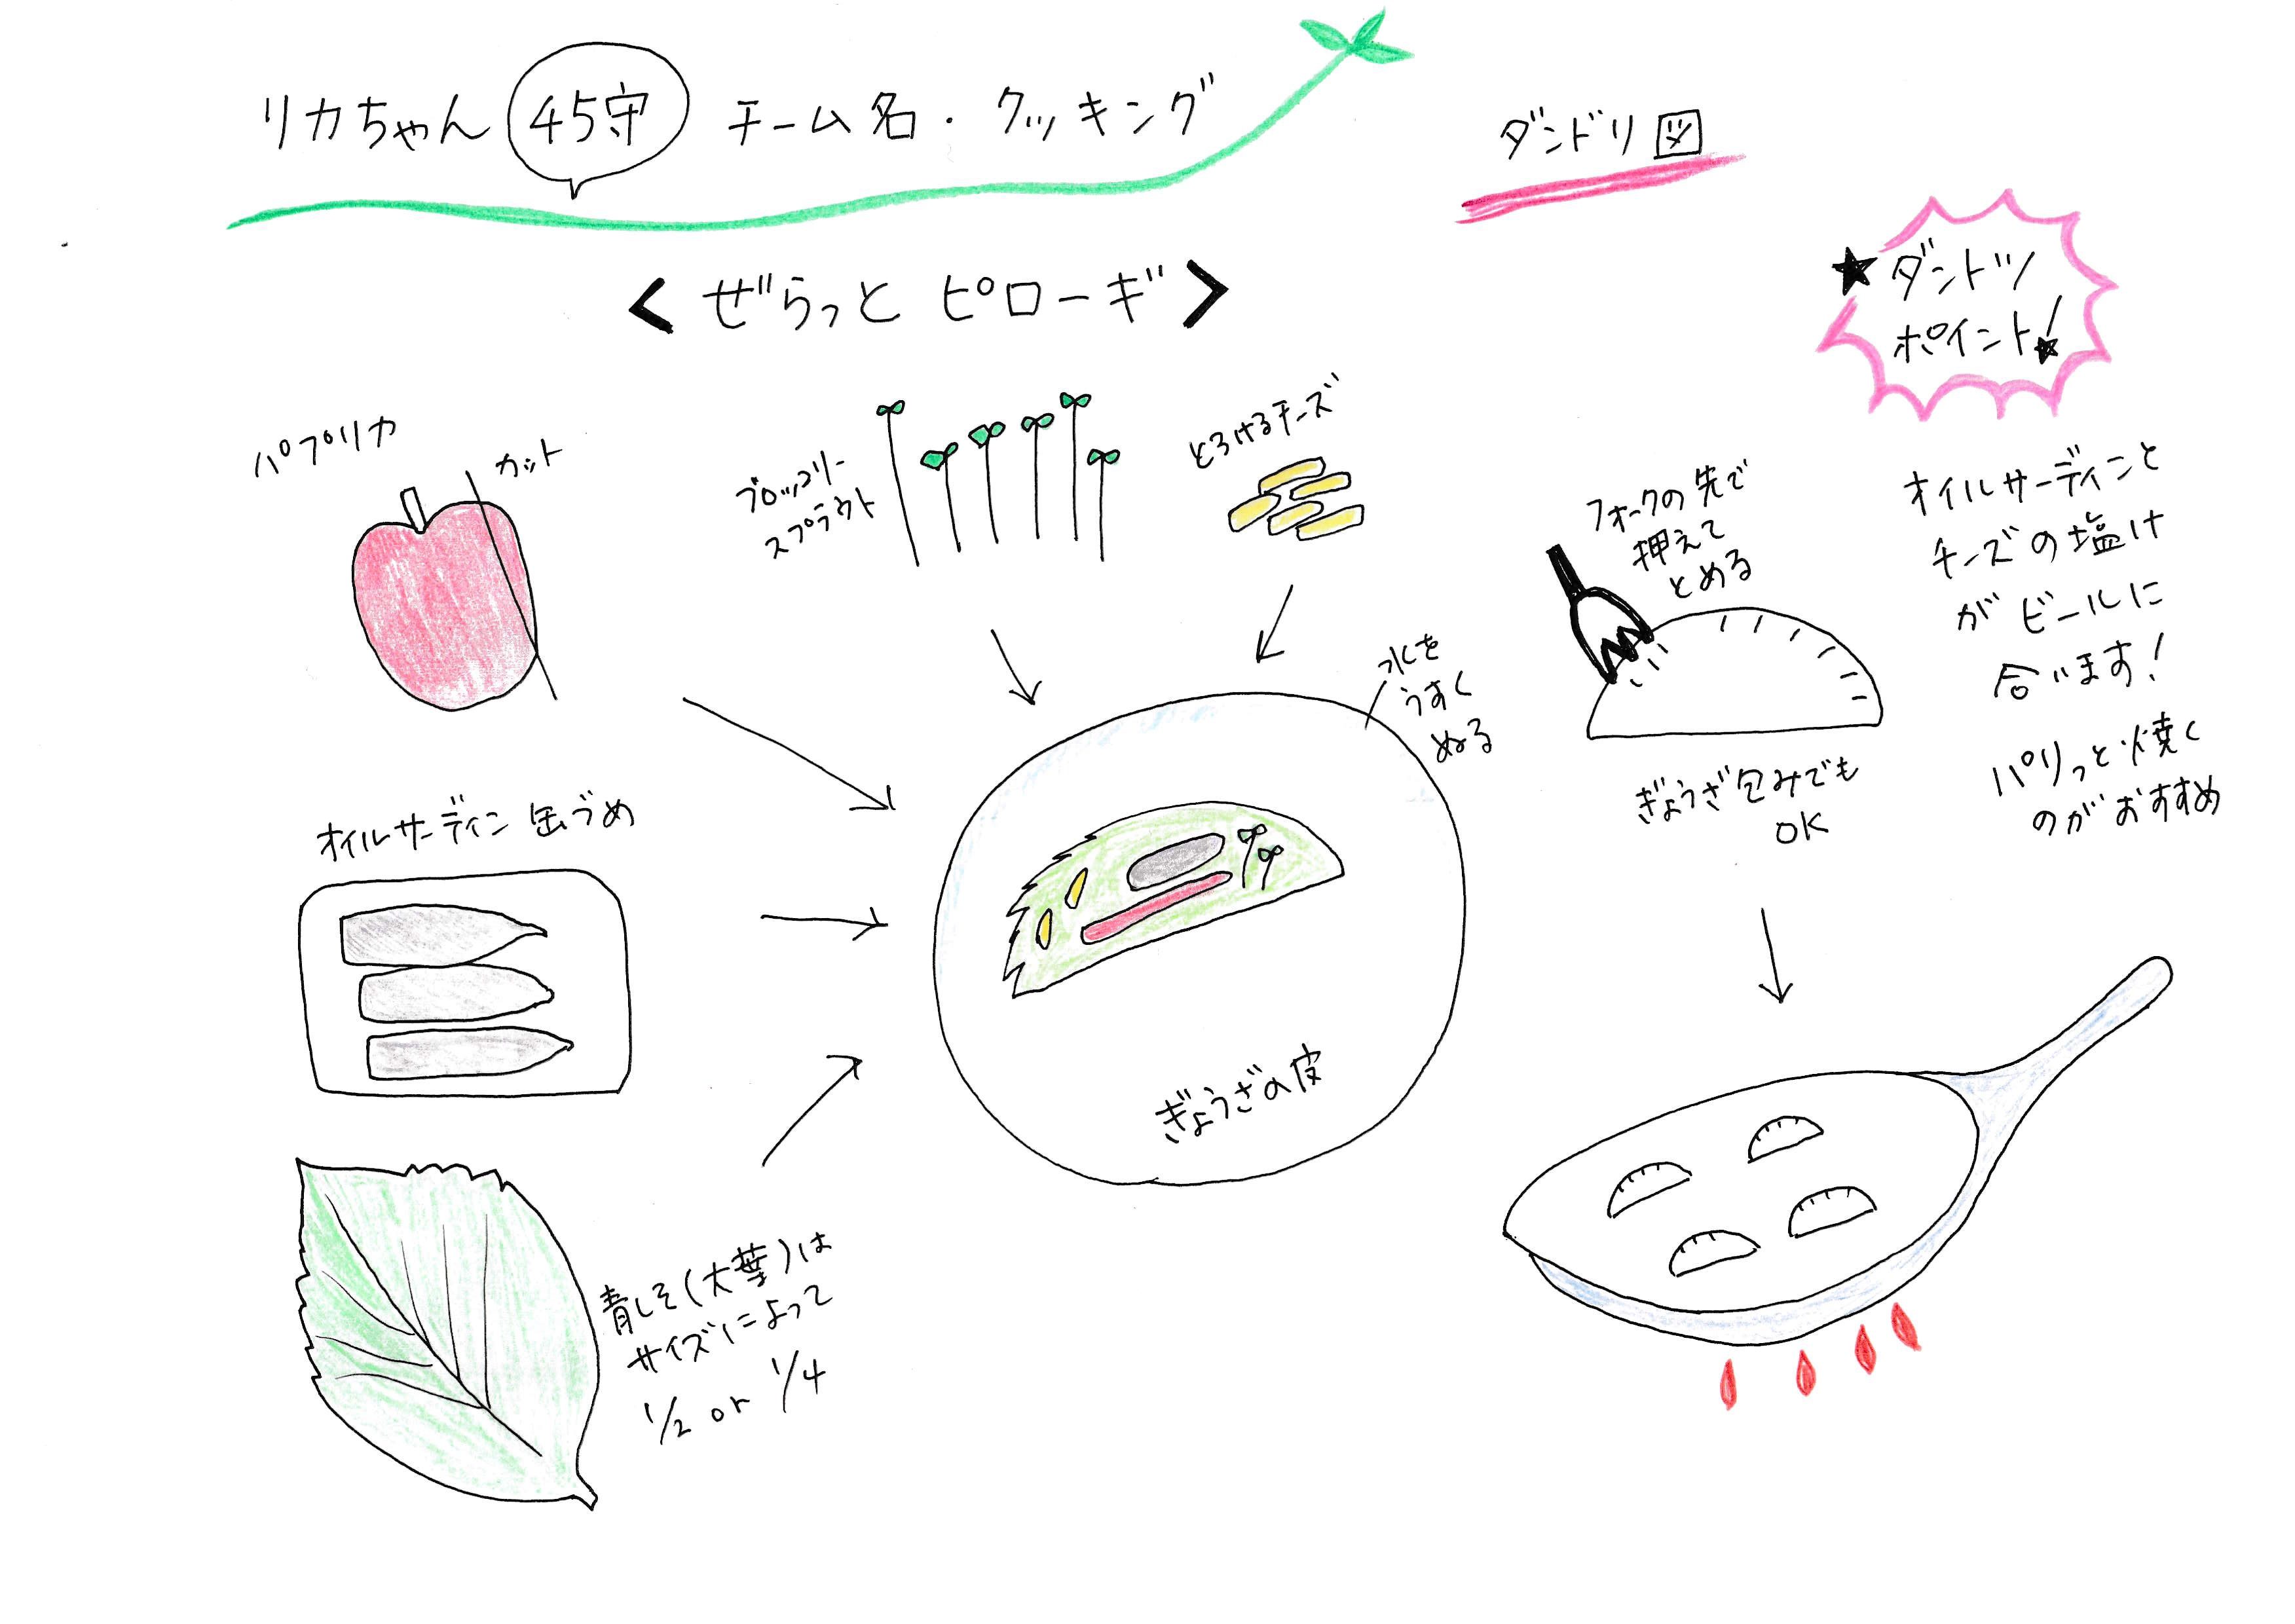 リカちゃん 45守 チーム名・クッキング
ダンドリ図
< ぜらっと ピローギ >
★ダンドツ
ポイント!★
パプリカ
カット
ブロッコリー
スプラウト
とろけるチーズ
フォークの先で
押えて
とめる
オイルサーディンと
チーズの塩け
がビールに
合います!
パリっと焼く
のがおすすめ
水を
うすく
ぬる
ぎょうざ包みでも
OK
オイルサーディン缶づめ
ぎょうざの皮
青しそ(大葉)は
サイズによって
1/2 or 1/4